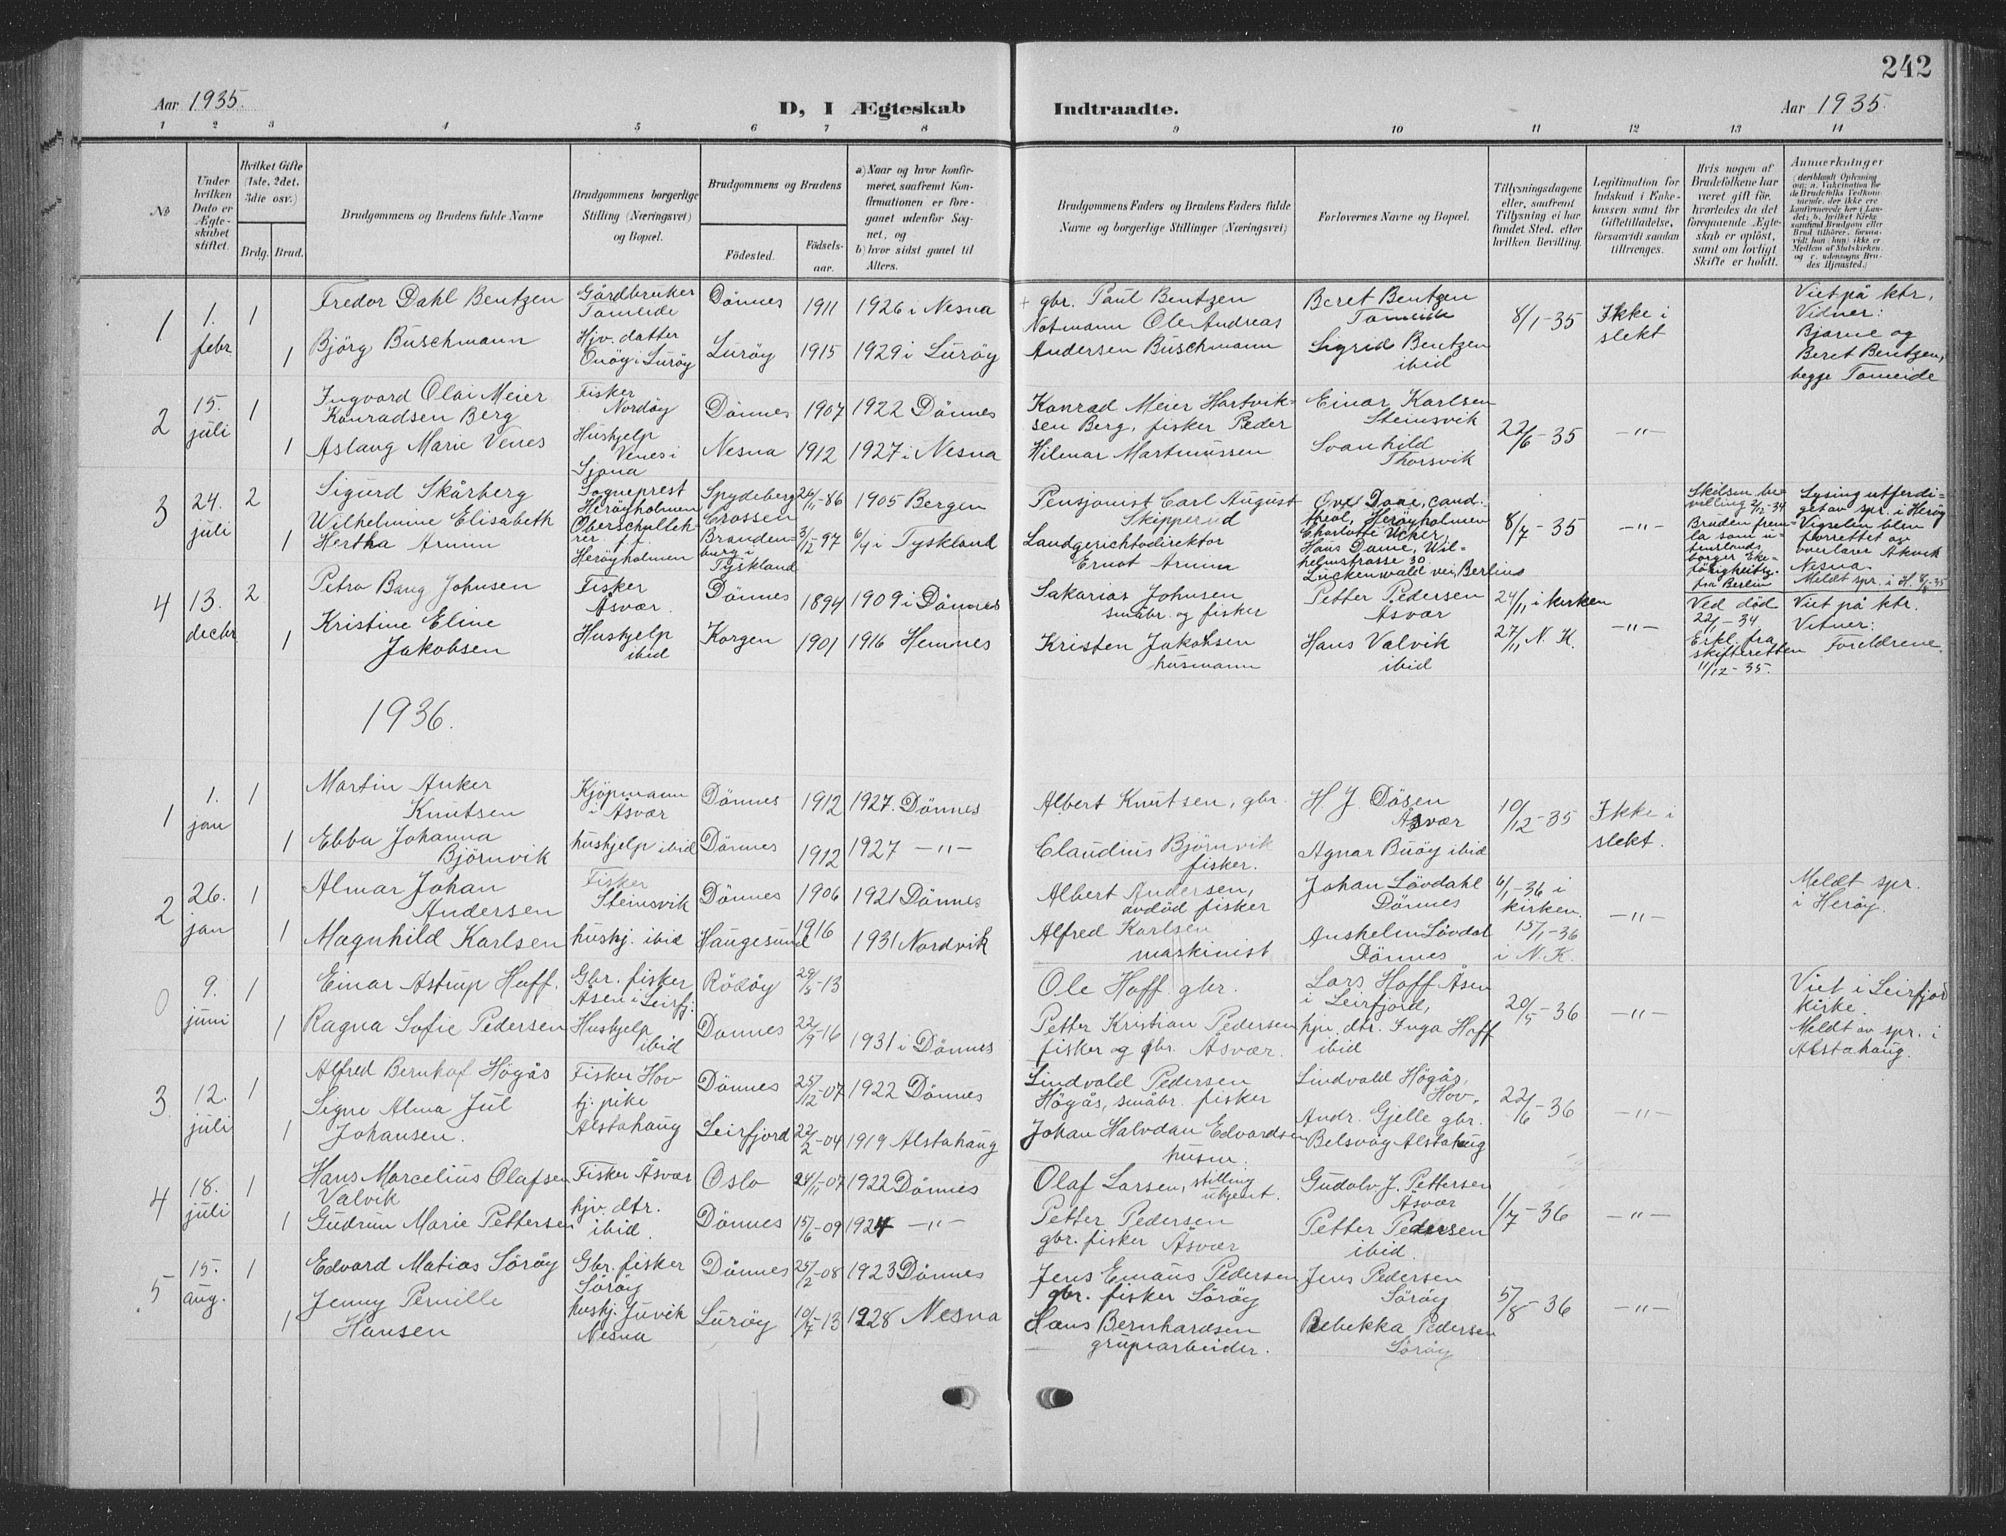 242
Aar 1935.
D, I Ægteskab Indtraadte.
Aar 1935.
1 2 3 4 5 6 7 8 9 10 11 12 13 14
No
Under hvilken Dato er Ægteskabet stiftet.
Hvilket Gifte (1ste, 2det, 3die osv.)
Brdg. Brud.
Brudgommens og Brudens fulde Navne
Brudgommens borgerlige Stilling (Næringsvei) og Bopæl.
Brudgommens og Brudens
Födested.
Födsels-aar.
a) Naar og hvor konfirmeret, saafremt Konfirmationen er foregaaet udenför Sognet, og
b) hvor sidst gaaet til Alters.
Brudgommens Faders og Brudens Faders fulde Navne og borgerlige Stillinger (Næringsvei)
Forlovernes Navne og Bopæl.
Tillysningsdagene eller, saafremt Tillysning ei har fundet Sted, efter hvilken Bevilling.
Legitimation for Indskud i Enkekassen samt for Giftetilladelse, forsaavidt saadan tiltrænges.
Hvis nogen af Brudefolkene har været gift för, hvorledes da det foregaaende Ægteskab er oplöst, samt om lovligt Skifte er holdt.
Anmærkninger
(deriblandt Oplysning om: a. Vakcination for de Brudefolks Vedkommende, der ikke ere konfirmerede her i Landet; b. hvilket Kirkesamfund Brudgom eller Brud tilhörer, forsaavidt han (hun) ikke er Medlem af Statskirken, og c. udensogns Brudes Hjemsted.)
1 1. febr 1 Fredor Dahl Bentzen Gårdbruker Tomeide Dönnes 1911 1926 i Nesna + gbr. Paul Bentzen Beret Bentzen Tomeide 8/1-35 Ikke i slekt Viet på ktr. Vidner: Bjarne og Beret Bentzen, begge Tomeide
1 Björg Buschmann Hjv. datter Onöy i Luröy Luröy 1915 1929 i Luröy Notmann Ole Andreas Andersen Buschmann Sigrid Bentzen ibid
2 15. juli 1 Ingvard Olai Meier Konradsen Berg Fisker Nordöy Dönnes 1907 1922 Dönnes Konrad Meier Hartviksen Berg, fisker Einar Karlsen Steinsvik 22/6-35 -"-
1 Aslaug Marie Venes Hushjelp Venes i Sjona Nesna 1912 1927 i Nesna Peder Hilmar Martinussen Svanhild Thorsvik
3 24. juli 2 Sigurd Skårberg Sogneprest Heröyholmen Spydeberg 26/11-86 1905 Bergen Pensjonist Carl August Skipperud Ove Daae, cand. theol, Heröyholmen 8/7-35 -"- Skilsm. bevilling 2/12-34 Bruden fremla som utenlandsborger Ekedögtighetsfra Berlin Lysing utferdiget av spr. i Heröy Vigselen blev forrettet av overlærer Akvik Nesna. Meldt spr. i H. 8/8-35
1 Wilhelmine Elisabeth Hertha Arnim Oberschullehrer f. f. Heröyholmen Crossen Brandenburg i Tyskland 3/12-97 6/4 i Tyskland Landgerichtsdirektor Ernst Arnim Charlotte Ucker, Hans Daae, Wilhelmstrasse 30. Luckenwald vei, Berlin
4 13. decbr 2 Petro Bang Johnsen Fisker Åsvær. Dönnes 1894 1909 i Dönnes Sakarias Johnsen småbr. og fisker Petter Pedersen Åsvær 24/11 i kirken 27/11 N. K. -"- Ved död 22/1-34 Erkl. fra skifteretten 11/12-35. Viet på ktr. Vitner: Foreldrene.
1 Kristine Eline Jakobsen Hushjelp ibid Korgen 1901 1916 Hemnes Kristen Jakobsen husmann Hans Valvik ibid
1936.
1 1. jan 1 Martin Anker Knutsen Kjöpmann i Åsvær Dönnes 1912 1927. Dönnes Albert Knutsen, gbr. H J. Dösen Åsvær 10/12-35 Ikke i slekt.
1 Ebba Johanna Björnvik hushjelp ibid Dönnes 1912 1927 -"- Claudius Björnvik fisker. Agnar Buöy ibid
2 26. jan 1 Almar Johan Andersen Fisker Steinsvik Dönnes 1906 1921 Dönnes Albert Andersen, avdöd fisker Johan Lövdahl Dönnes 6/1-36 i kirken. -"- Meldt spr. i Heröy.
1 Magnhild Karlsen hushj. ibid Haugesund 1916 1931 Nordvik Alfred Karlsen maskinist Anshelm Lövdal Dönnes 15/1-36 i N. K.
0 9. juni 1 Einar Astrup Hoff. Gbr. fisker Åsen i Leirfj. Rödöy 29/5-13 Ole Hoff gbr. Lars Hoff Åsen i Leirfjord, 20/5-36 -"- Viet i Leirfjord kirke. Meldt av spr. i Alstahaug.
1 Ragna Sofie Pedersen Hushjelp ibid Dönnes 22/9-16 1931 i Dönnes Petter Kristian Pedersen fisker og gbr. Åsvær. hjv. dtr. Inga Hoff ibid
3 12. juli 1 Alfred Bernhof Högås Fisker Hov Dönnes 25/12-07 1922 Dönnes Lindvald Pedersen Högås, småbr. fisker Lindvald Högås, Hov. 22/6-36 -"-
1 Signe Alma Jul Johansen. tj. pike Alstahaug Leirfjord 22/2-04 1919 Alstahaug Johan Halvdan Edvardsen husm. Andr. Gjelle gbr. Belsvåg Alstahaug
4 18. juli 1 Hans Marcelius Olafsen Valvik Fisker Åsvær Oslo 24/11-07 1922 Dönnes Olaf Larsen, stilling ukjent. Gudolv J. Pettersen Åsvær 1/7-36 -"-
1 Gudrun Marie Pettersen hjv. dtr. ibid. Dönnes 15/6-09 1924 -"- Petter Pedersen gbr. fisker Åsvær Petter Pedersen ibid.
5 15. aug. 1 Edvard Matias Söröy Gbr. fisker Söröy Dönnes 25/2-08 1923 Dönnes Jens Emaus Pedersen gbr. fisker Söröy Jens Pedersen Söröy 5/8-36 -"-
1 Jenny Pernille Hansen hushj. Juvik Nesna Luröy 10/7-13 1928 Nesna Hans Bernhardsen grupearbeider. Rebekka Pedersen Söröy